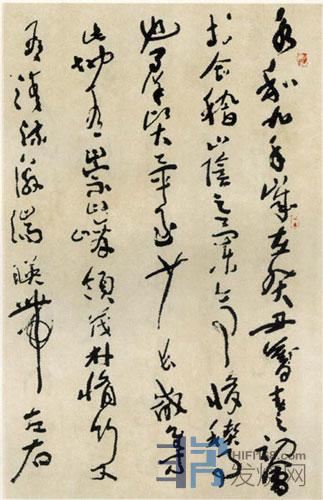 永和九年歲在癸丑暮春之初會
於會稽山陰之蘭亭修稧事
也羣賢畢至少長咸集
此地有崇山峻領茂林脩竹又
有清流激湍映帶左右
发烧网